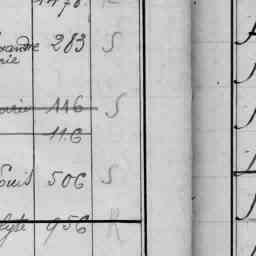 1478. R
xandre 283 S
rie
arie 116 S
116
Louis 506 S
lyte 956 R